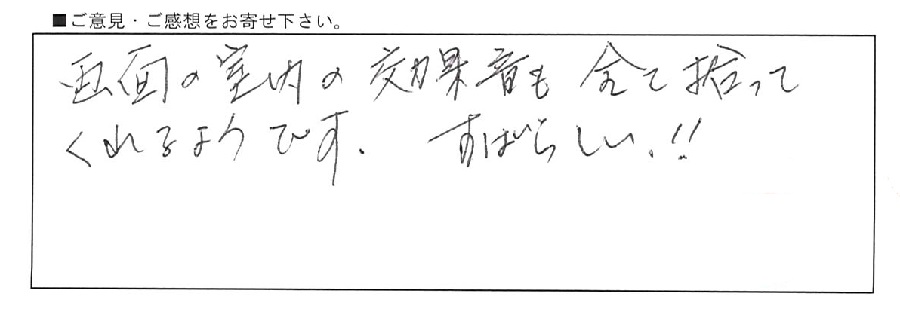 ■ご意見・ご感想をお寄せ下さい。
画面の室内の効果音も全て拾って
くれるようです. すばらしい.!!